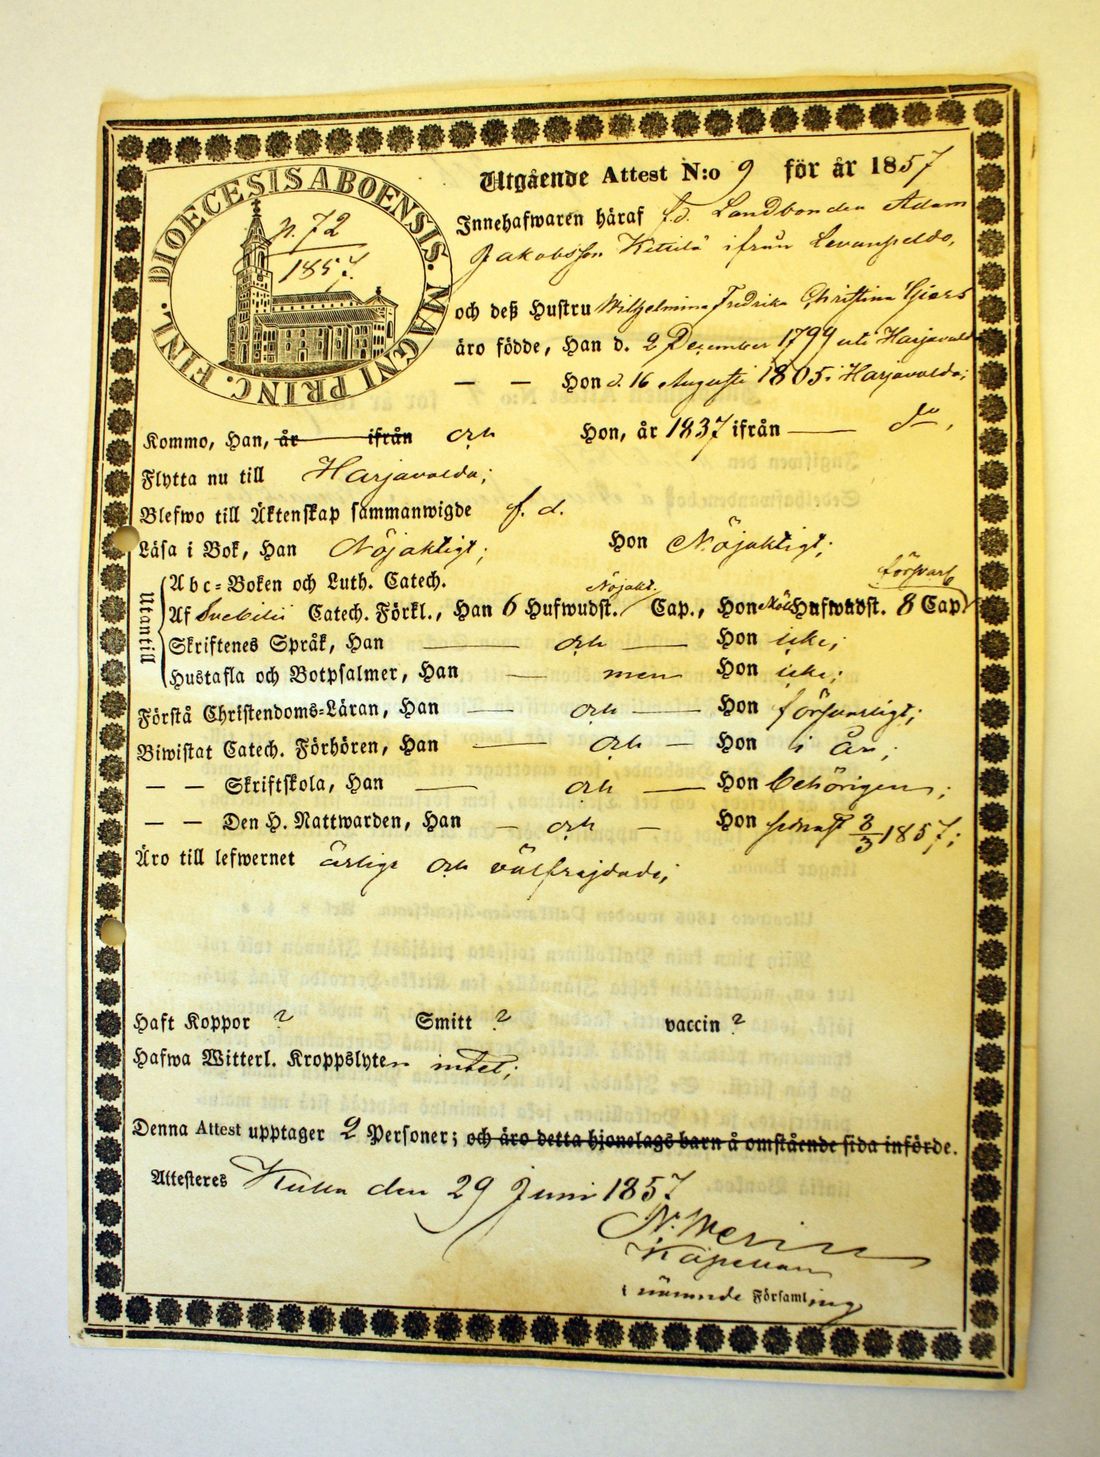 DIOECESIS ABOENSIS. MAGNI PRINC. FINL.
p. 72
1857.
Utgående Attest N:o 9 för år 1857
Innehafwaren häraf f.d. Landbonden Adam
Jakobsson Kittilä ifrån
och deß Hustru Wilhelmina Fredrika Christina Giers
äro födde, Han d. 2 December 1799 uti Harjavalda
— — Hon d. 16 Augusti 1805 i Harjavalda;
Kommo, Han, år ifrån och Hon, år 1837 ifrån — do,
Flytta nu till Harjavalda;
Blefwo till Äktenskap sammanwigde f. d.
Läsa i Bok, Han Nöjaktigt; Hon Nöjaktigt;
Utantill
Abc-Boken och Luth. Catech.
Nöjakt. försvarl
Af Svebilii Catech. Förkl., Han 6 Hufwudst. Cap., Hon Hufwudst. 8 Cap
Skriftenes Språk, Han — och — Hon icke;
Hustafla och Botpsalmer, Han — men Hon icke;
Förstå Christendoms-Läran, Han — och — Hon försvarligt;
Biwistat Catech. Förhören, Han — och — Hon i år;
— — Skriftskola, Han — och — Hon behörigen;
— — Den H. Nattwarden, Han — och — Hon senast 3/3 1857;
Äro till lefwernet ärlige och välfrejdade;
Haft Koppor ? Smitt ? vaccin ?
Hafwa Witterl. Kroppslyten intet;
Denna Attest upptager 2 Personer; och äro detta hjonelags barn å omstående sida införde.
Attesteres den 29 Juni 1857
Kapellan
i nämnde Församling